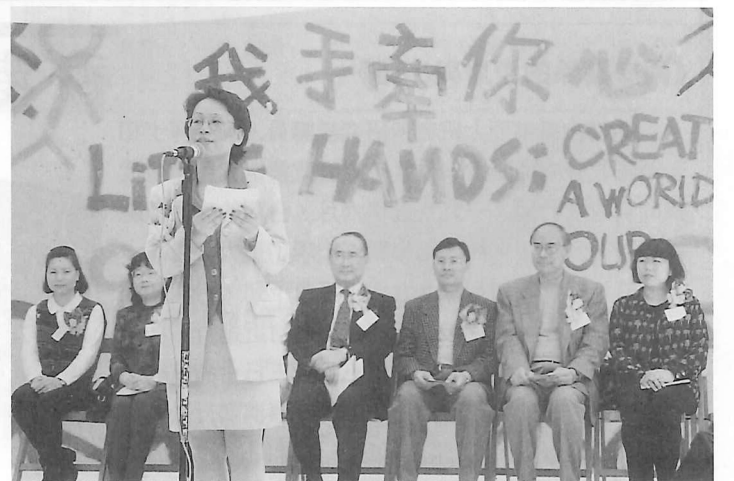 我手牽你心
LiTTLE HANDS:
CREAT
A WORLD
OUR